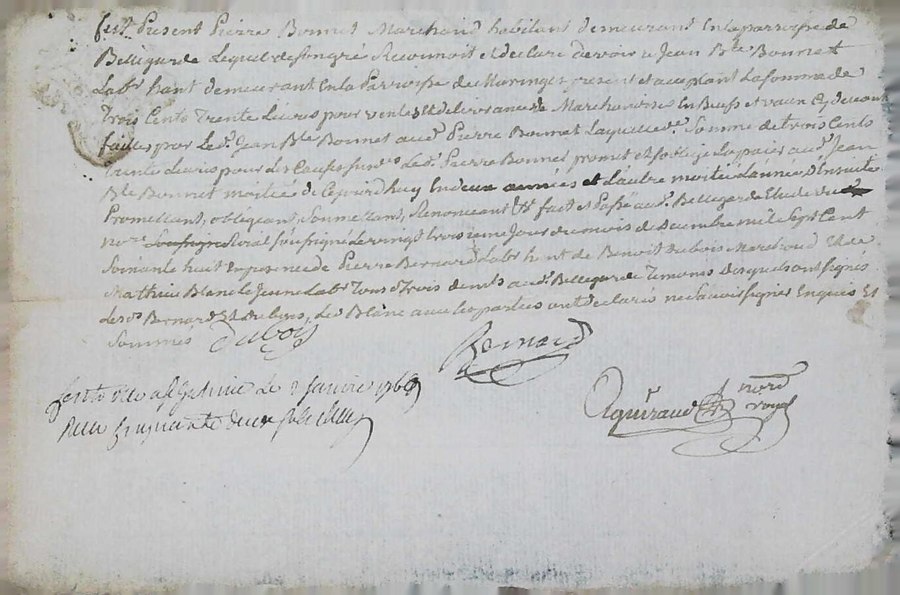 fus. Present Pierre Bonnet Marchand habitant demeurant En la parroisse de
Bellegarde Lequel de son gré Reconnoit et declare devoir a Jean Bte Bonnet
Labr hant demeurant En la Parroisse de present et acceptant La somme de
Trois Cents Trente Livres pour vente et delivrance de Marchandise En Bœufs et vaux Cy devant
faittes par Led. Jean Bte Bonnet aud. Pierre Bonnet Laquelle de. Somme de trois Cents
trente Livres pour Les Causes Led. Pierre Bonnet promet et s'oblige La paier aud. Jean
Bte Bonnet moitié de Cejourdhuy En deux années et L'autre moitié L'année d'Ensuitte
Promettant, obligeant, Soumettant, Renonceant &c fait et Passé aud. Bellegarde Etude du
nore. Roial soussigné Le vingt troisieme Jour du mois de Decembre mil Sept Cent
Soixante huit En presence de Pierre Bernard Labr hant de Benoit Dubois Marchand & de
Mathieu Blanc Le Jeune Labr Tous Trois dem.ts aud. Bellegarde Temoins Lesquels ont signés
Lesd. Bernard & Dubois, Led. Blanc avec les parties ont declarés ne Savoir signer Enquis Et
Sommés Dubois
Bernard
Le 2 Janvier 1769
Reçu
Aguiraud nore.
royal